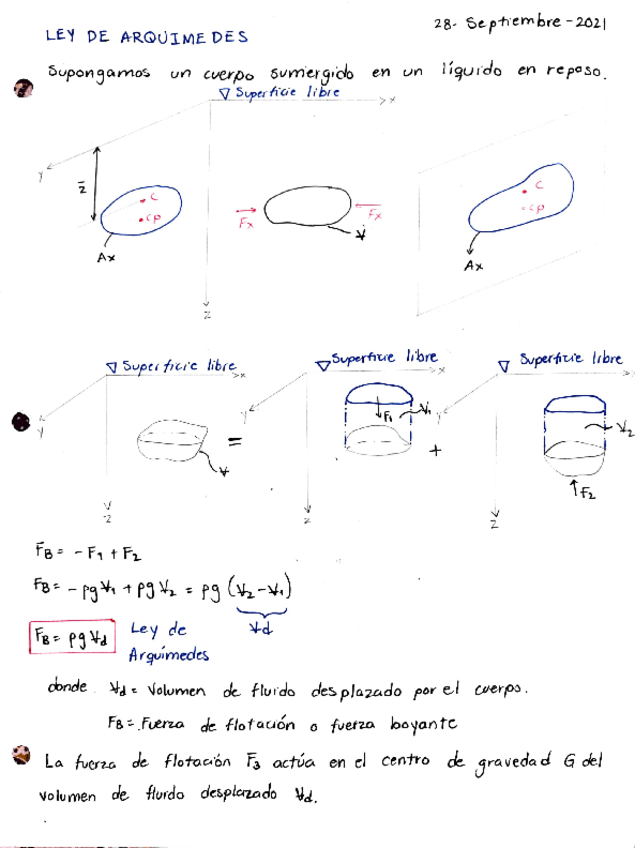 28- Septiembre-2021
LEY DE ARQUIMEDES
Supongamos un cuerpo sumergido en un líquido en reposo.
▽ Superficie libre
x
y
z̄
C
CP
Ax
Fx
Fx
V
C
CP
Ax
z
▽ Superficie libre
▽ Superficie libre
▽ Superficie libre
x
x
x
y
y
y
F₁
V₁
V₂
V
=
+
F₂
z
z
z
FB = - F₁ + F₂
FB = - ρgV₁ + ρgV₂ = ρg (V₂-V₁)
Vd
FB = ρgVd
Ley de
Arquímedes
donde. Vd = Volumen de fluido desplazado por el cuerpo.
FB = Fuerza de flotación o fuerza boyante
La fuerza de flotación F3 actúa en el centro de gravedad G del
volumen de fluido desplazado Vd.